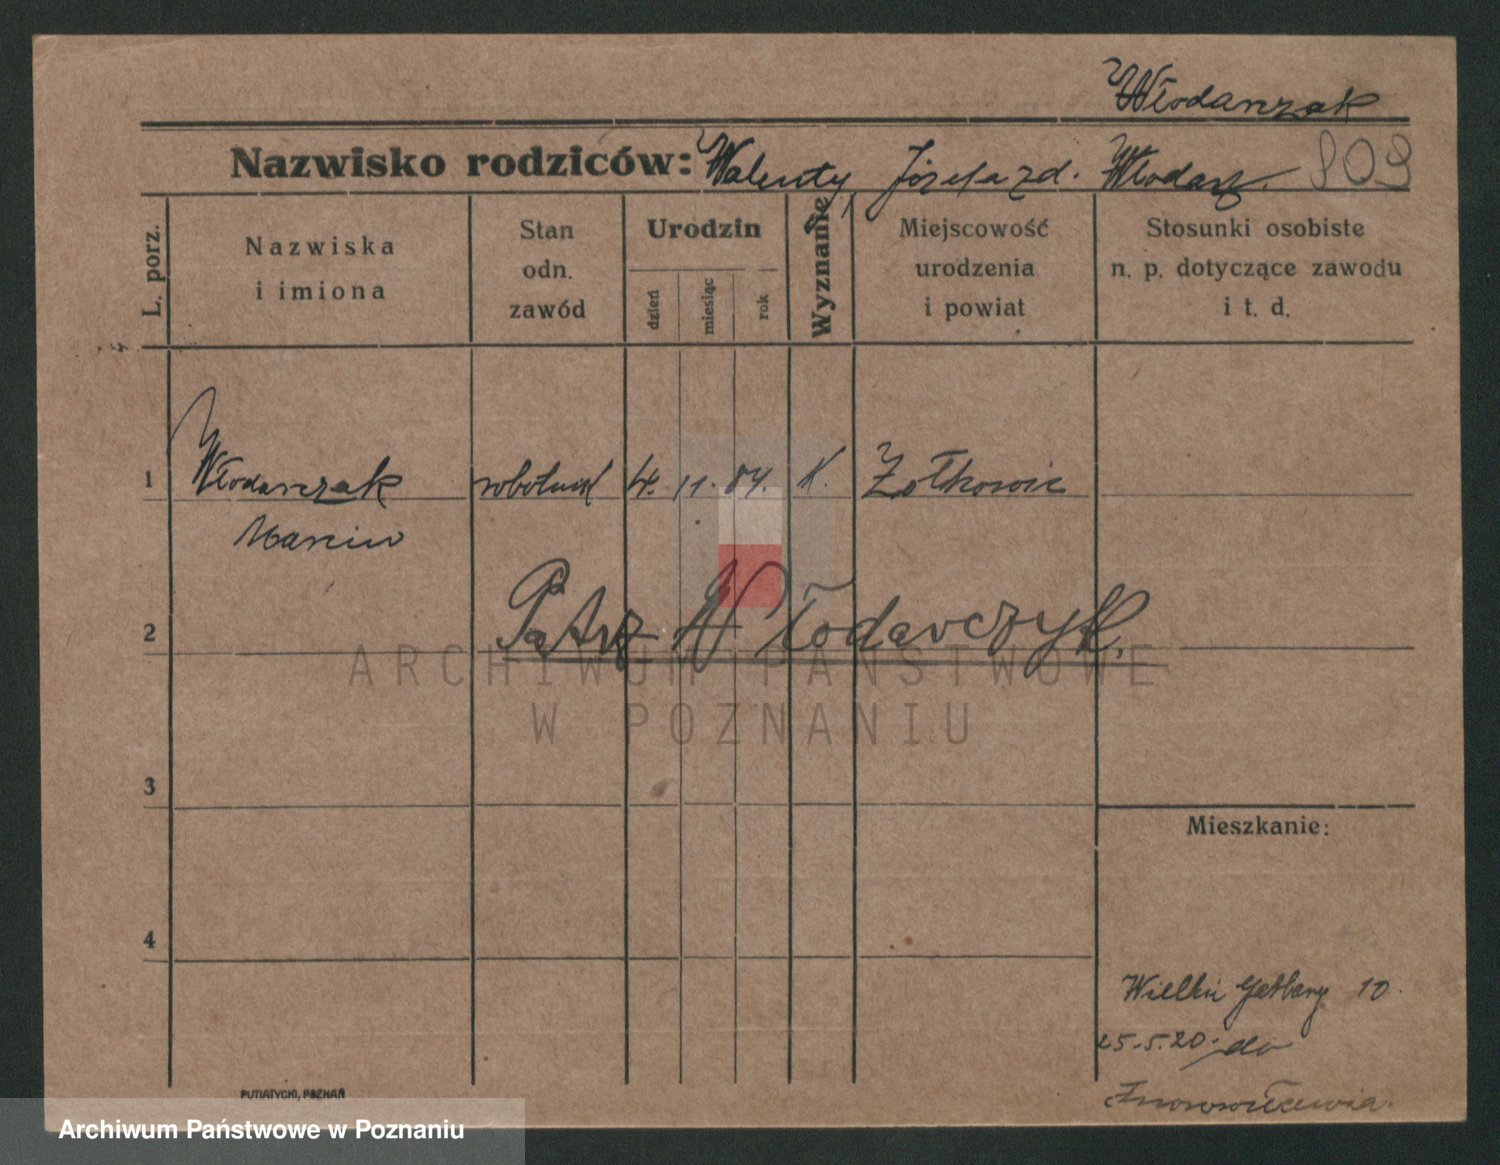 Włodarczak
Nazwisko rodziców: Walenty, Józefa zd. Włodarz. 809
L. porz.
Nazwiska
i imiona
Stan
odn.
zawód
Urodzin
dzień
miesiąc
rok
Wyznanie
Miejscowość
urodzenia
i powiat
Stosunki osobiste
n. p. dotyczące zawodu
i t. d.
1 Włodarczak robotnik 4. 11. 84. K. Żołkowic
Marcin
2 Patrz Włodarczyk.
ARCHIWUM PAŃSTWOWE
W POZNANIU
3
Mieszkanie:
4
Wielkie Garbary 10.
25.5.20. do
Inowrocławia.
PUTIATYCKI, POZNAŃ
Archiwum Państwowe w Poznaniu